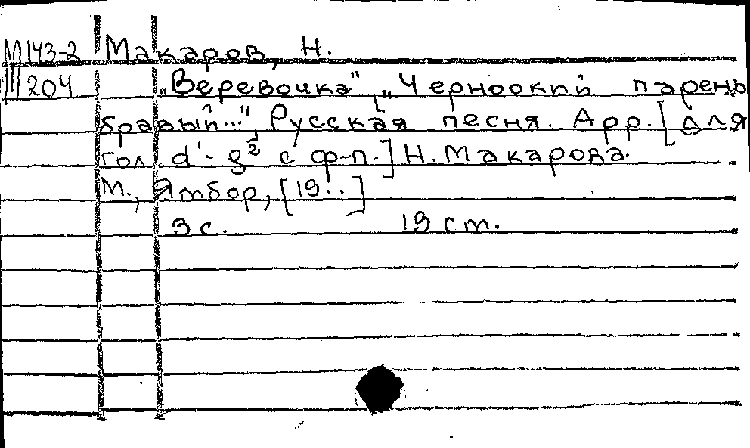 М143-2 Макаров, Н.
III 204 „Веревочка", [„Черноокий парень
бравый..." Русская песня. Арр. [для
гол. d¹-g² с ф-п.] Н. Макарова.
М., Ямбор, [19..]
3 с. 19 см.